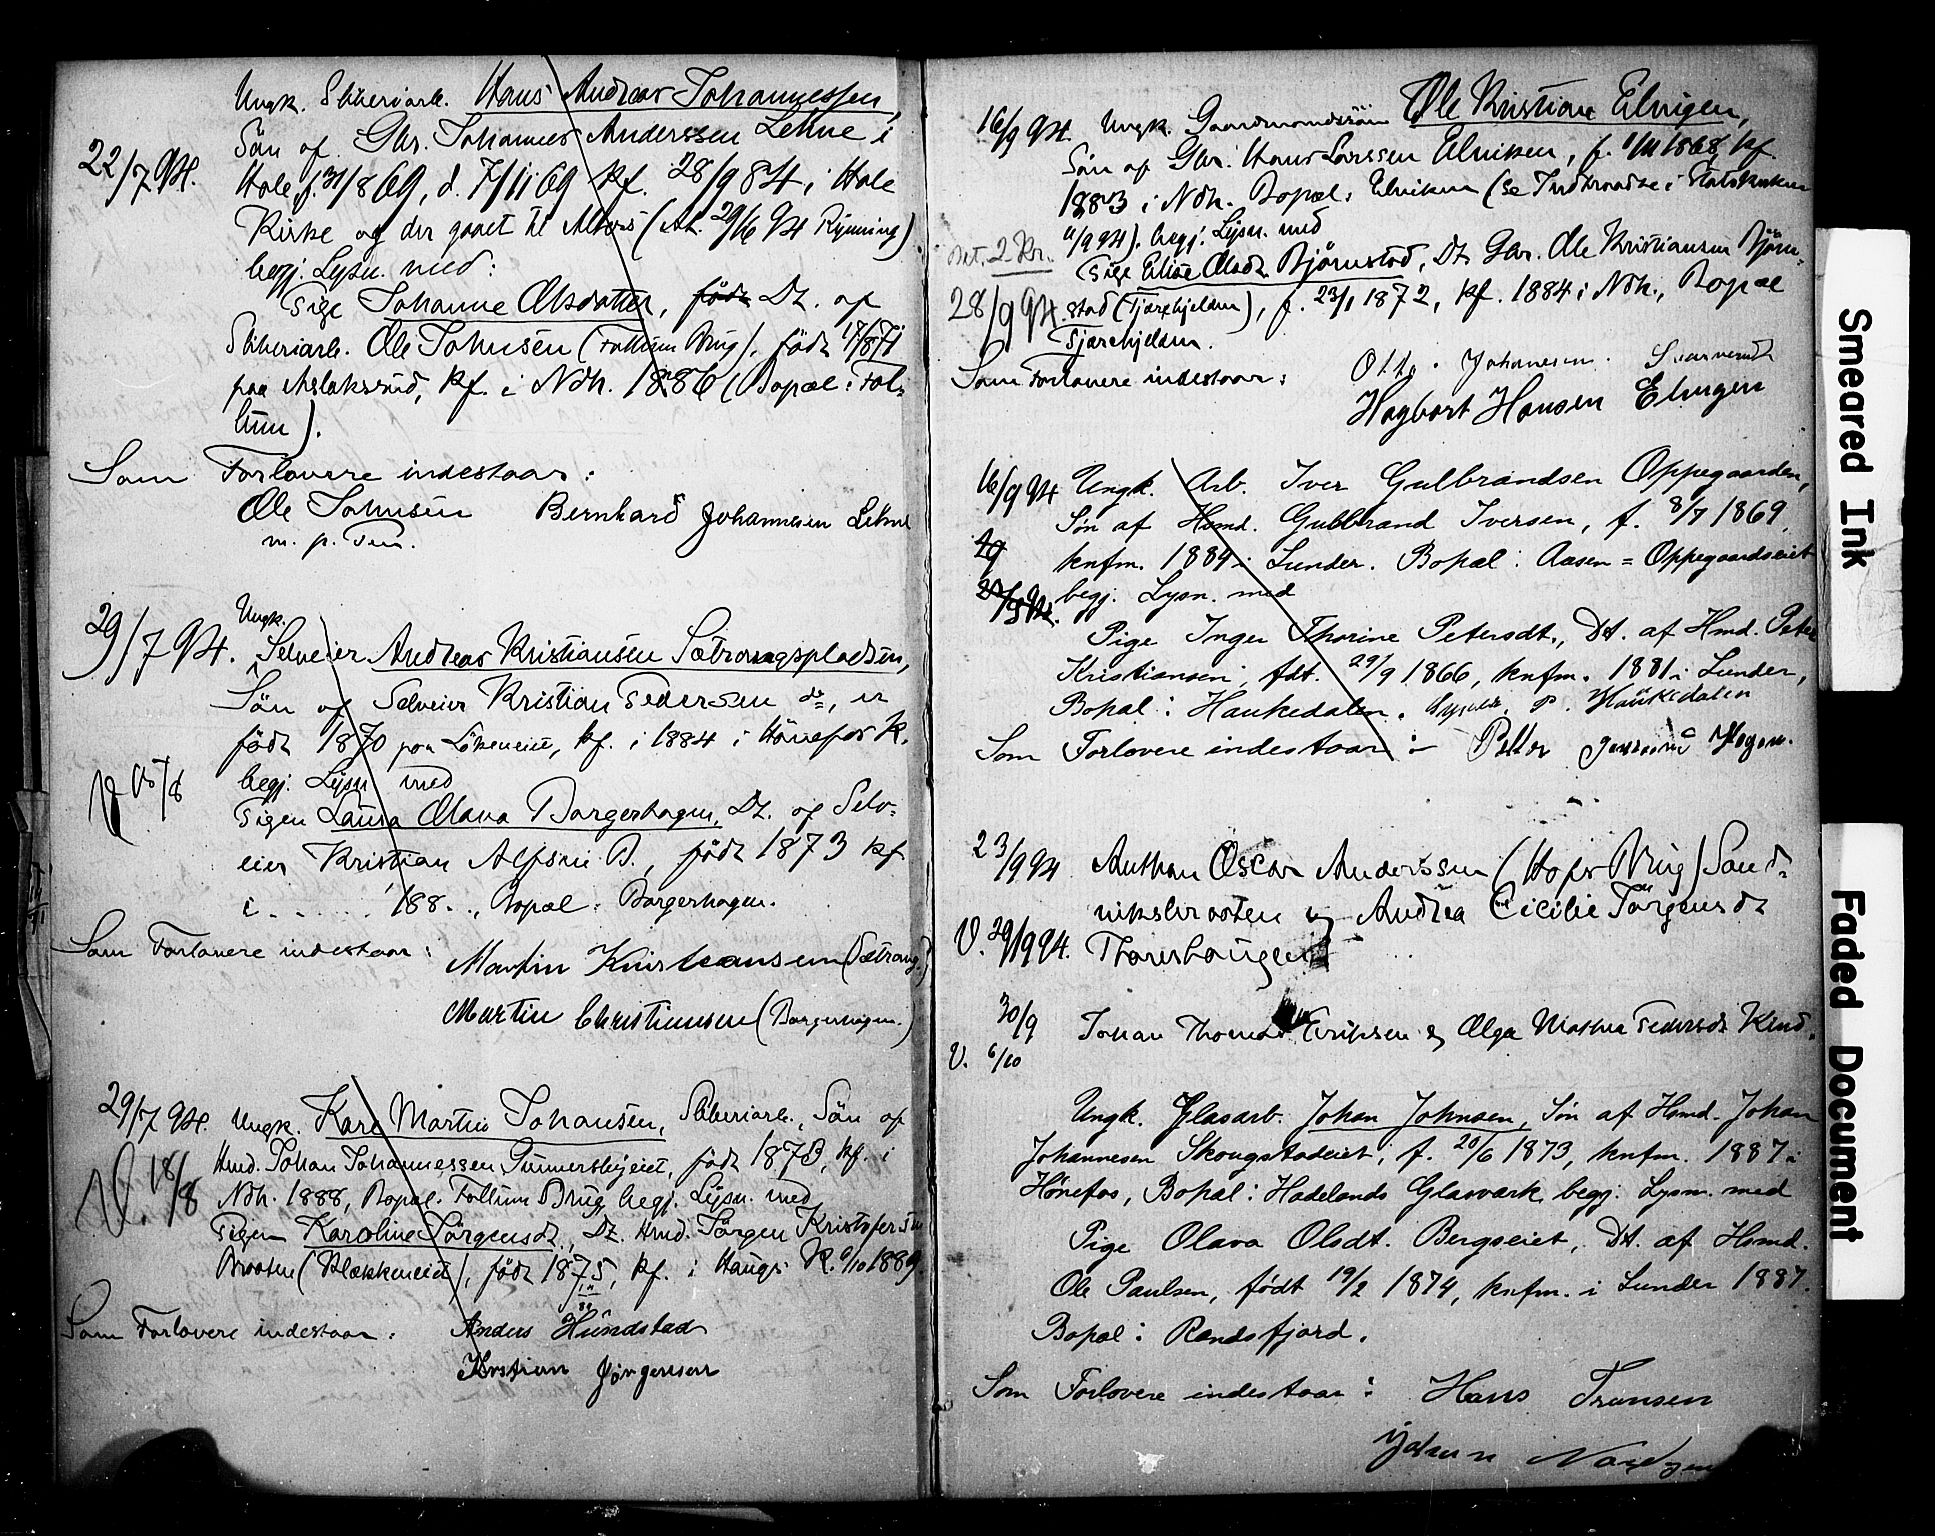 Ungk. Sliberiarb. Hans Andreas Johannessen,
Sön af Gbr. Johannes Anderssen Lehne i
22/7 94. Hole f. 31/8 69, d. 7/11 69 kf. 28/9 84 i Hole
Kirke og der gaaet til Alters (At. 29/6 94 Rynning)
begj. Lysn. med:
Pige Johanne Olsdatter, födt Dt. af
Sliberiarb. Ole Johnsen (Follum Brug), födt 17/8 71
paa Aslaksrud, kf. i Ndh. 1886 (Bopæl: Fol-
lum).
Som Forlovere indestaar:
Ole Johnsen Bernhard Johannesen Lehne
m. p. Pen.
29/7 94. Ungk.
Selveier Andreas Kristiansen Sætrangspladsen,
Sön af Selveier Kristian Pedersen do, er
födt 1870 paa kf. i 1884 i Hönefos K.
begj. Lysn med
Pigen Laura Olava Borgerhagen, Dt. af Selv-
eier Kristian Alfsen B., födt 1873 kf
i . . . . . . 188 . ., Bopæl: Borgerhagen.
Som Forlovere indestaar:
Martin Kristiansen (Sætrang.)
Martin Christiansen (Borgerhagen.)
29/7 94. Ungk. Karl Martin Johansen, Sliberiarb., Sön af
Hmd. Johan Johannessen födt 1873, kf. i
V. 18/8 Ndh. 1888, Bopæl. Follum Brug begj. Lysn. med
Pigen Karoline Jörgensdt., Dt. Hmd. Jörgen Kristofersen
Braaten (Klækkeneiet), födt 1875, kf. i Haugs K. 6/10 1889.
Som Forlovere indestaar: Anders Hundstad
Kristian Jörgensen
16/9 94. Ungk. Gaardmandssön Ole Kristian Elvigen,
Sön af Gbr. Hans Larssen Elviken, f. 1/11 1868, kf.
1883 i Ndh. Bopæl: Elviken (se Indtraadte i Statskirken
11/9 94). begj. Lysn. med
Bet. 2 Kr. Pige Elise Olsdt. Björnstad, Dt. Gbr. Ole Kristiansen Björn-
28/9 94. stad (Tjærehjelden), f. 23/1 1872, kf. 1884 i Ndh., Bopæl
Tjærehjelden.
Som Forlovere indestaar: Otto Johanesen
Hagbart Hansen Elvigen
16/9 94 Ungk. Arb. Iver Gulbrandsen Oppegaarden,
Søn af Hsmd. Gulbrand Iversen, f. 8/7 1869,
knfm. 1884 i Lunder. Bopæl: Aasen = Oppegaardseiet
begj. Lysn. med
Pige Inger Thorine Petersdt., Dt. af Hmd. Peter
Kristiansen, fdt. 29/9 1866, knfm. 1881 i Lunder,
Bopæl: Haukedalen. P. Haukedalen
Som Forlovere indestaar:- Petter Hagen.
23/9 94 Anthon Oscar Anderssen (Hofs Brug) Sand-
viksbraaten og Andrea Cicilie Jörgensdt
V. 29/9 94. Thoreshaugen
30/9 Johan Thomas Eriksen & Olga Mathea Pedersdt
V. 6/10
Ungk. Glasarb. Johan Johnsen, Søn af Hsmd. Johan
Johannesen Skougstadeiet, f. 20/6 1873, knfm. 1887 i
Hönefos, Bopæl: Hadelands Glasværk, begj. Lysn. med
Pige Olava Olsdt. Bergseiet, Dt. af Hsmd.
Ole Paulsen, født 19/2 1874, knfm. i Lunder 1887.
Bopæl: Randsfjord.
Som Forlovere indestaar: Hans Transen
Smeared Ink
Faded Document